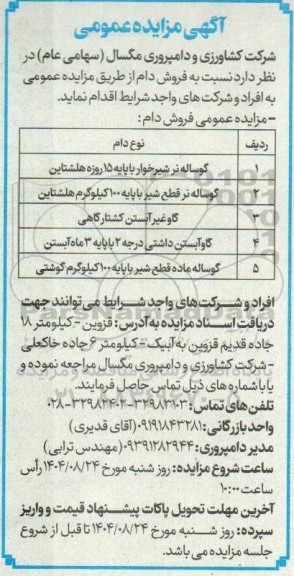 آگهی مزایده عمومی
شرکت کشاورزی و دامپروری مگسال (سهامی عام) در
نظر دارد نسبت به فروش دام از طریق مزایده عمومی
به افراد و شرکت های واجد شرایط اقدام نماید.
- مزایده عمومی فروش دام:
ردیف نوع دام
۱ گوساله نر شیرخوار با پایه ۱۵ روزه هلشتاین
۲ گوساله نر قطع شیر با پایه ۱۰۰ کیلوگرم هلشتاین
۳ گاو غیر آبستن کشتارگاهی
۴ گاو آبستن داشتی درجه ۲ با پایه ۳ ماه آبستن
۵ گوساله ماده قطع شیر با پایه ۱۰۰ کیلوگرم گوشتی
افراد و شرکت های واجد شرایط می توانند جهت
دریافت اسناد مزایده به آدرس: قزوین - کیلومتر ۱۸
جاده قدیم قزوین به آبیک - کیلومتر ۶ جاده خاکعلی
- شرکت کشاورزی و دامپروری مگسال مراجعه نموده و
یا با شماره های ذیل تماس حاصل فرمایند.
تلفن های تماس: ۳۲۹۸۳۱۰۳-۳۲۹۸۳۴۰۲-۰۲۸
واحد بازرگانی: ۰۹۱۹۱۸۴۳۲۸۱ (آقای قدیری)
مدیر دامپروری: ۰۹۳۹۱۲۸۲۹۴۴ (مهندس ترابی)
ساعت شروع مزایده: روز شنبه مورخ ۱۴۰۴/۰۸/۲۴ رأس
ساعت ۱۰:۰۰
آخرین مهلت تحویل پاکات پیشنهاد قیمت و واریز
سپرده: روز شنبه مورخ ۱۴۰۴/۰۸/۲۴ تا قبل از شروع
جلسه مزایده می باشد.